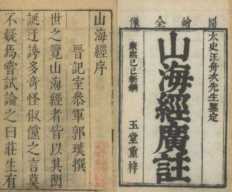 太史汪舟次先生鑒定
山海經廣註
玉堂重梓
山海經序
晉記室參軍郭璞撰
世之覽山海經者皆以其閎
誕迂誇多奇怪俶儻之言莫
不疑焉嘗試論之曰莊生有